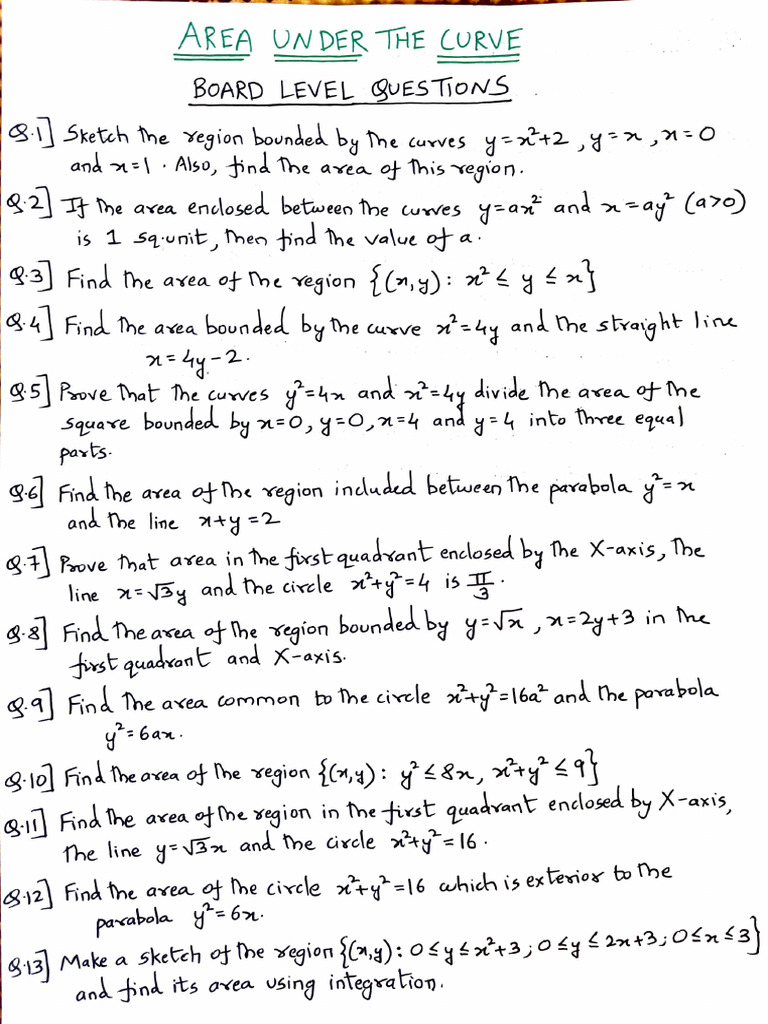 AREA UNDER THE CURVE
BOARD LEVEL QUESTIONS.
Q.1] Sketch the region bounded by the curves y=x²+2, y=x, x=0
and x=1. Also, find the area of this region.
Q.2] If the area enclosed between the curves y=ax² and x=ay² (a>0)
is 1 sq.unit, then find the value of a.
Q.3] Find the area of the region {(x,y): x² ≤ y ≤ x}
Q.4] Find the area bounded by the curve x²=4y and the straight line
x=4y-2.
Q.5] Prove that the curves y²=4x and x²=4y divide the area of the
square bounded by x=0, y=0, x=4 and y=4 into three equal
parts.
Q.6] Find the area of the region included between the parabola y²=x
and the line x+y=2
Q.7] Prove that area in the first quadrant enclosed by the X-axis, the
line x=√3y and the circle x²+y²=4 is π/3.
Q.8] Find the area of the region bounded by y=√x, x=2y+3 in the
first quadrant and X-axis.
Q.9] Find the area common to the circle x²+y²=16a² and the parabola
y²=6ax.
Q.10] Find the area of the region {(x,y): y² ≤ 8x, x²+y² ≤ 9}
Q.11] Find the area of the region in the first quadrant enclosed by X-axis,
the line y=√3x and the circle x²+y²=16.
Q.12] Find the area of the circle x²+y²=16 which is exterior to the
parabola y²=6x.
Q.13] Make a sketch of the region {(x,y): 0≤y≤x²+3; 0≤y≤2x+3; 0≤x≤3}
and find its area using integration.